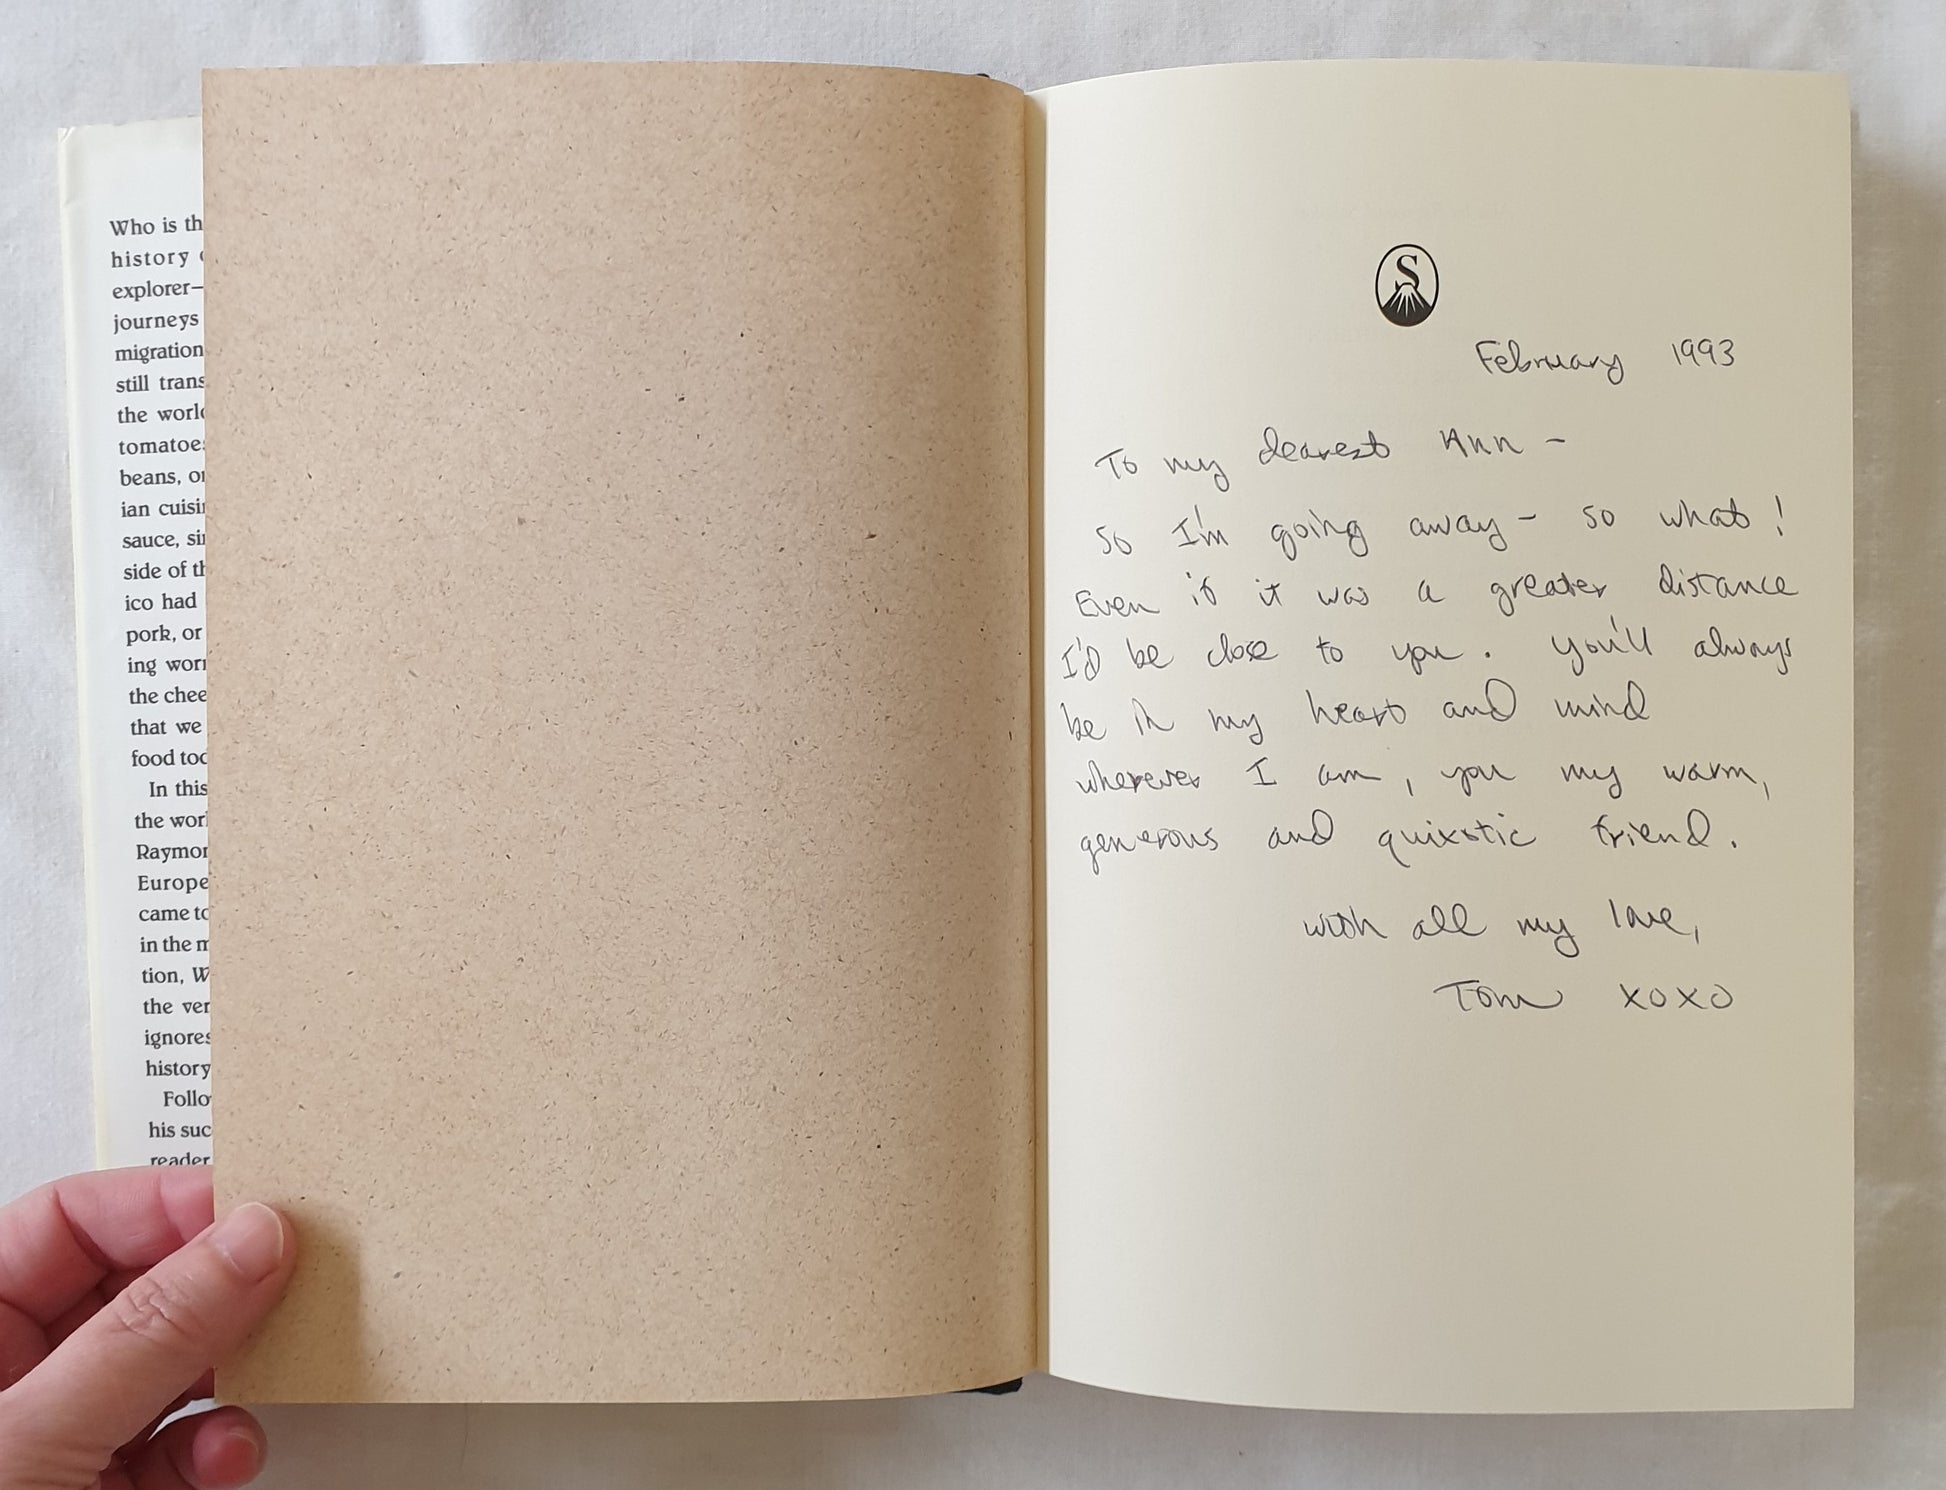 Who is th
history
explorer—
journeys
migration
still trans
the world
tomatoes
beans, or
ian cuisi
sauce, si
side of th
ico had
pork, or
ing wor
the chee
that we
food tod
In this
the worl
Raymon
Europe
came to
in the m
tion, W
the ver
ignores
history
Follo
his suc
reader
S
February 1993
To my dearest Ann -
So I'm going away - so what!
Even if it was a greater distance
I'd be close to you. You'll always
be in my heart and mind
wherever I am, you my warm,
generous and quixotic friend.
with all my love,
Tom xoxo